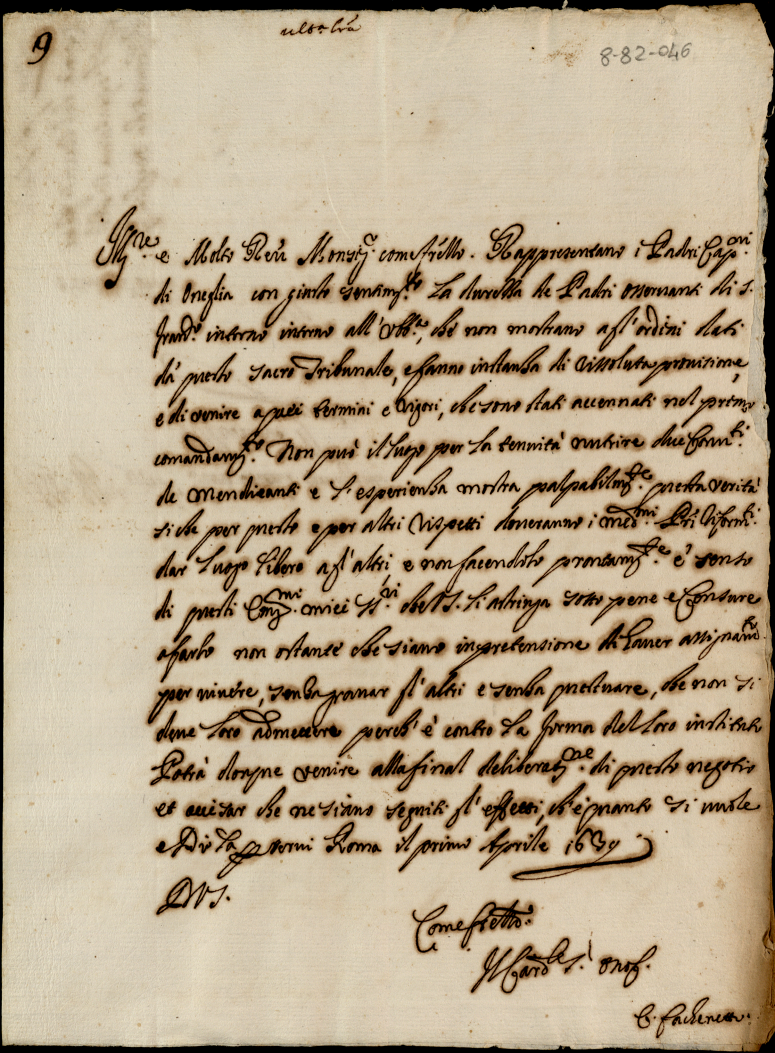 9
8-82-046
Ill.re e Molto Reu. Monsig.r come fr̃ello. Rappresentano i Padri Cap.ni
di Oneglia con giusto sentim.to la durezza de Padri osseruanti di S.
Franc.o intorno intorno all'Vbb.a, che non mostrano agl'ordini dati
da questo sacro Tribunale, e fanno instanza di rissoluta prouisione,
e di venire a quei termini e rigori, che sono stati accennati nel primo
comandam.to Non può il luogo per la tenuità nutrire due Conu.ti
de Mendicanti e l'esperienza mostra palpabilm.te questa verità
si che per questo e per altri rispetti doueranno i med.mi Pri Riform.ti
dar luogo libero agl'altri e non facendolo prontam.te è senso
di questi Em.mi miei SS.ri che V.S. li astringa sotto pene e Censure
a farlo non ostante che siano in pretensione di hauer assignam.to
per viuere, senza grauar gl'altri e senza questuare, che non si
deue loro admettere perch'è contro la forma del loro instituto
Potrà donque venire alla final deliberat.ne di questo negotio
et auisar che ne siano seguiti gl'effetti, ch'è quanto si vuole
e Dio la prosperi Roma il primo Aprile 1639
D V S.
Come fr̃ello.
Il Card.le S.t Onof.